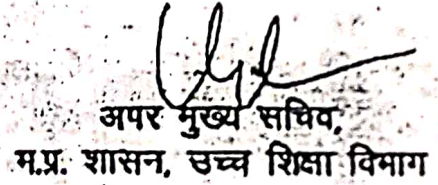 अपर मुख्य सचिव,
म.प्र. शासन, उच्च शिक्षा विभाग